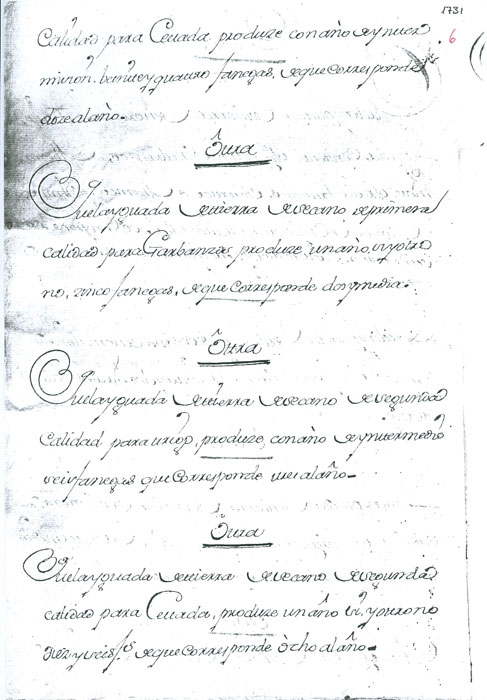 1731
6
Calidad para Ceuada produze con año de ynter
mision. beinte y quatro fanegas, de que corresponde
doze al año.
Otra
Que la yguada de tierra de secano de primera
calidad para Garbanzos produze un año, si y otro
no, zinco fanegas, de que corresponde dos y media.
Otra
Que la yguada de tierra de secano de segunda
Calidad para trigo, produze, con año de yntermedio
seis fanegas que corresponde tres al año.
Otra
Que la yguada de tierra de secano de segunda
calidad para Ceuada, produze un año si, y otro no
diez y seis fs. de que corresponde ocho al año.